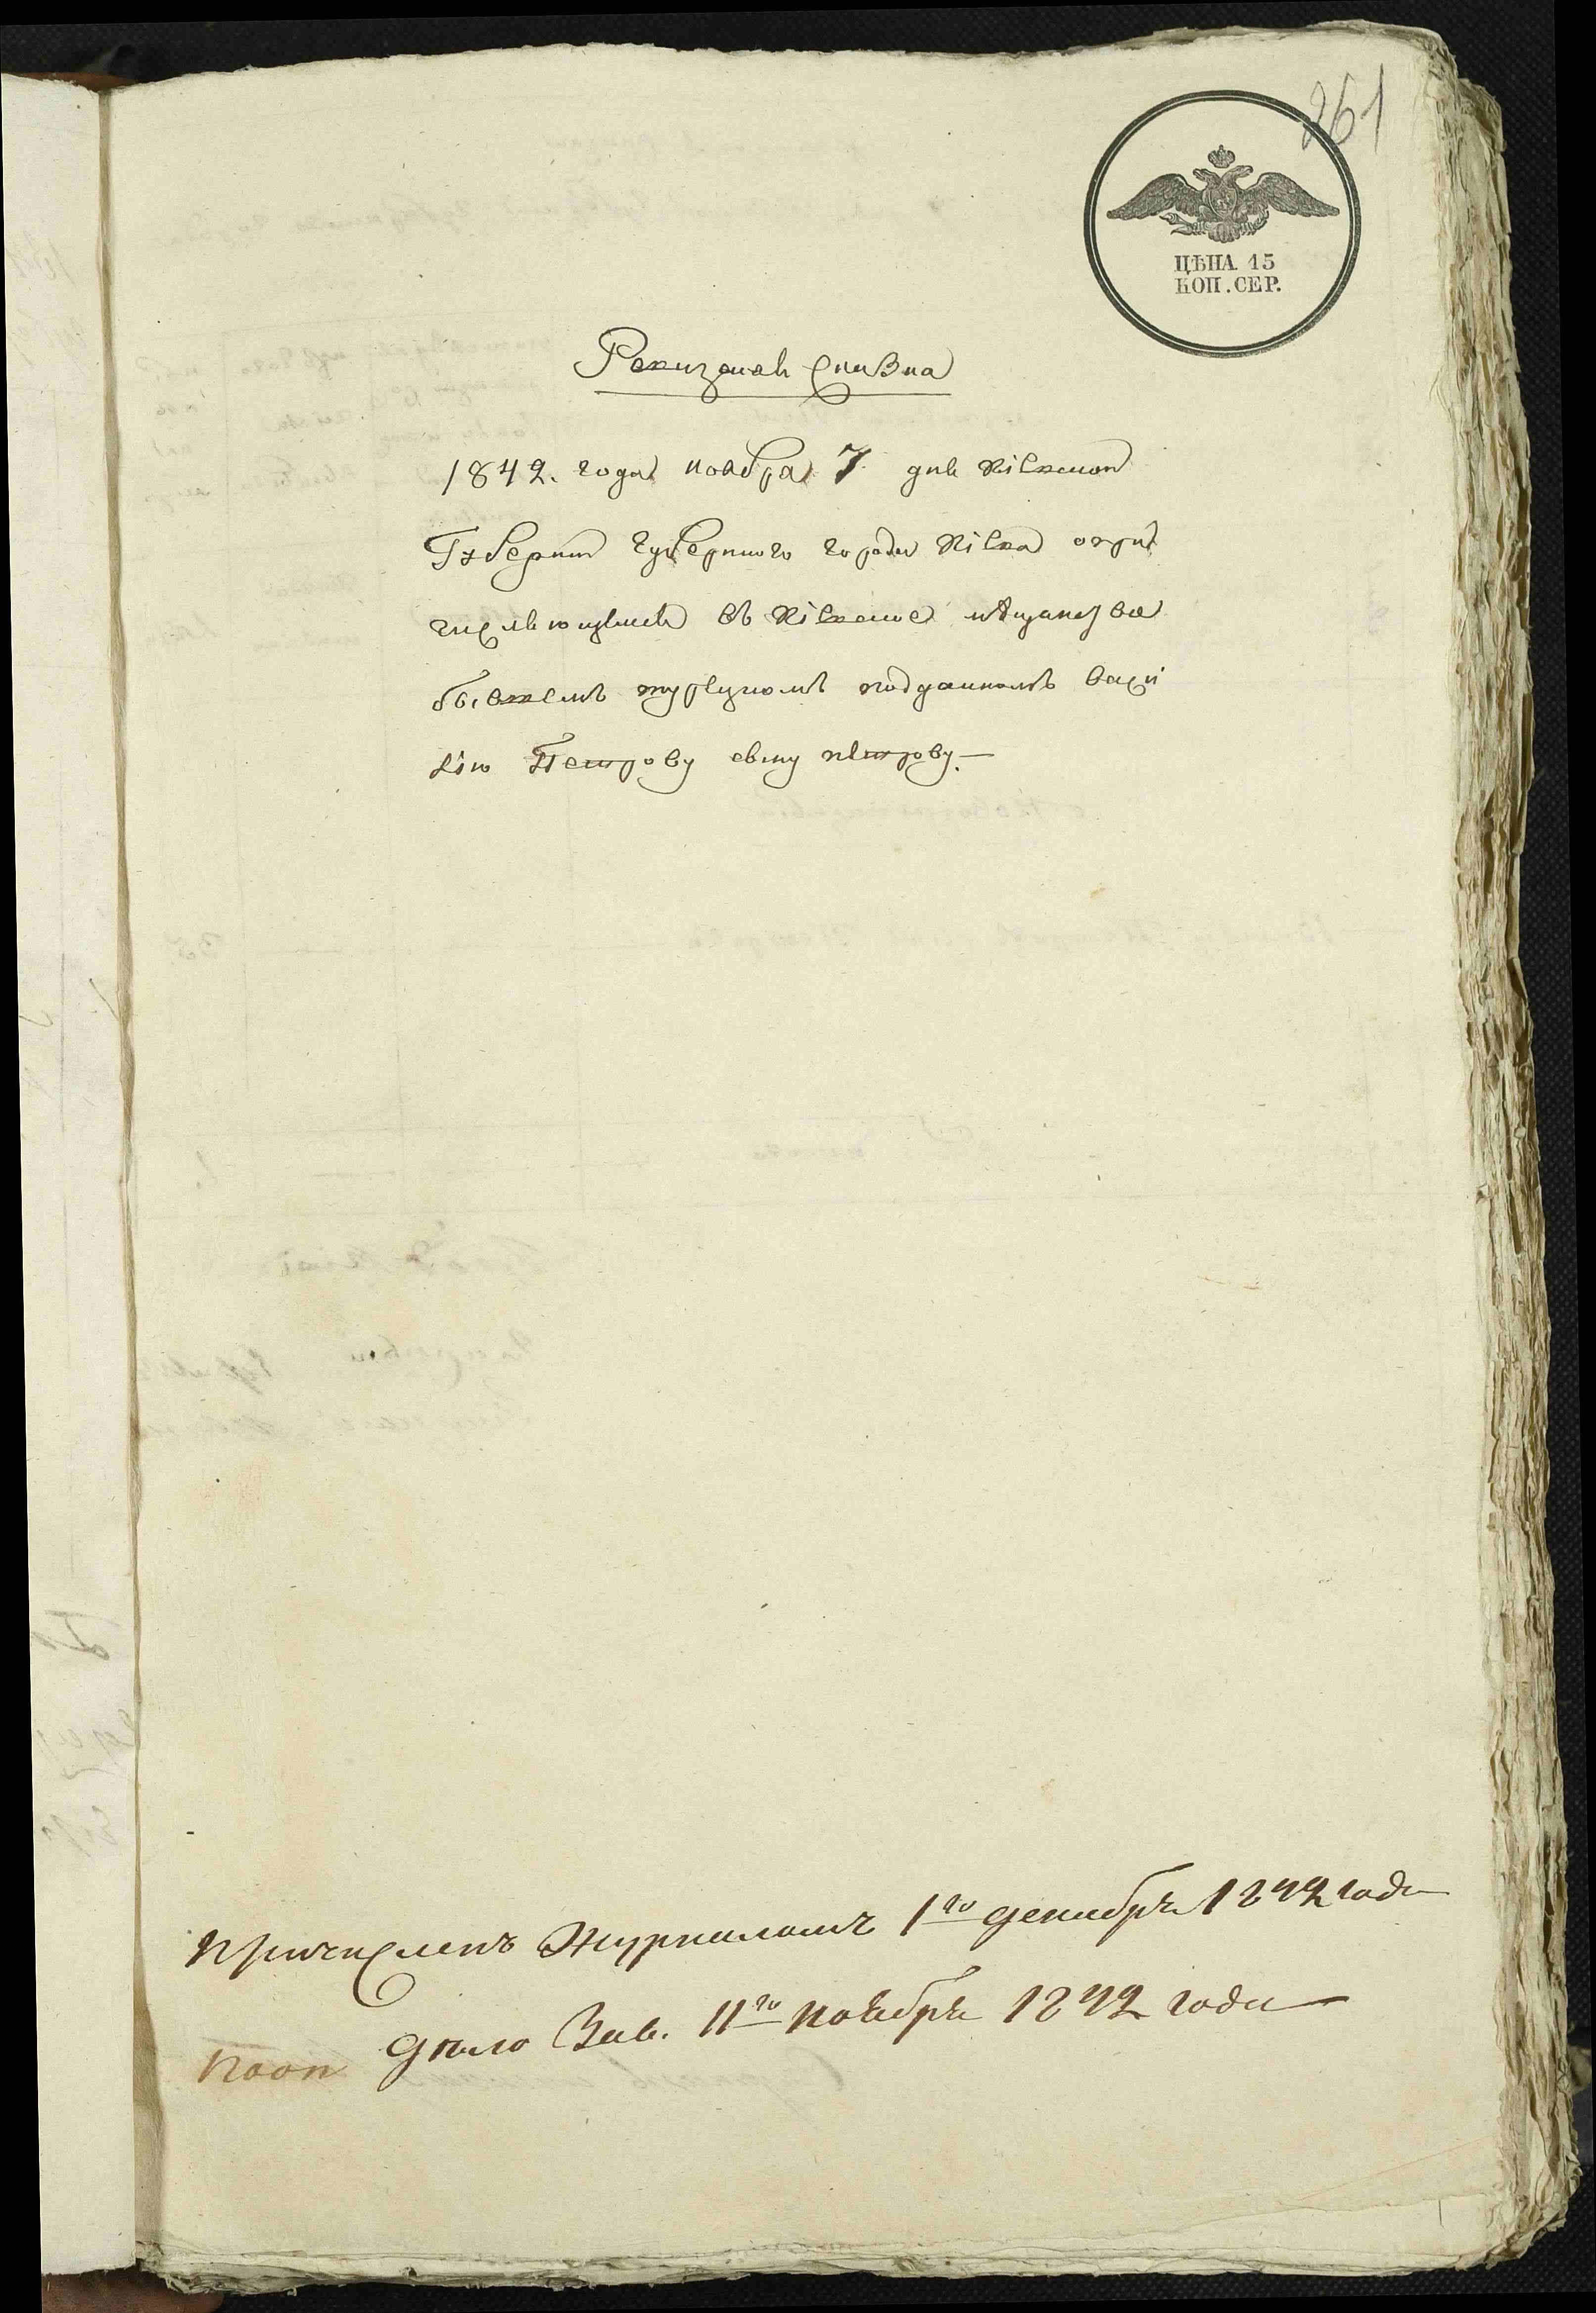 261
ЦѢНА 15
КОП. СЕР.
Ревизская Сказка
1842. года ноября 7 дня Кіевской
Губерніи губернского города Кіева о при
числяющемся въ Кіевское мѣщанство
бывшемъ турецкомъ подданномъ Васи
лію Петрову сыну Петрову.—
Причисленъ Журналомъ 1го декабря 1842 года
дѣло Зав. 11го ноября 1842 года